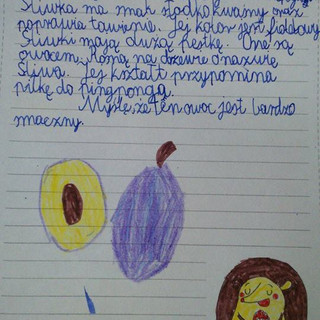 Śliwka ma smak słodko kwaśny oraz
poprawia trawienie. Jej kolor jest fioletowy
Śliwki mają dużą pestkę. One są
owocem, rosną na drzewie o nazwie
śliwa. Jej kształt przypomina
piłkę do pingponga.
Myślę, że ten owoc jest bardzo
smaczny.